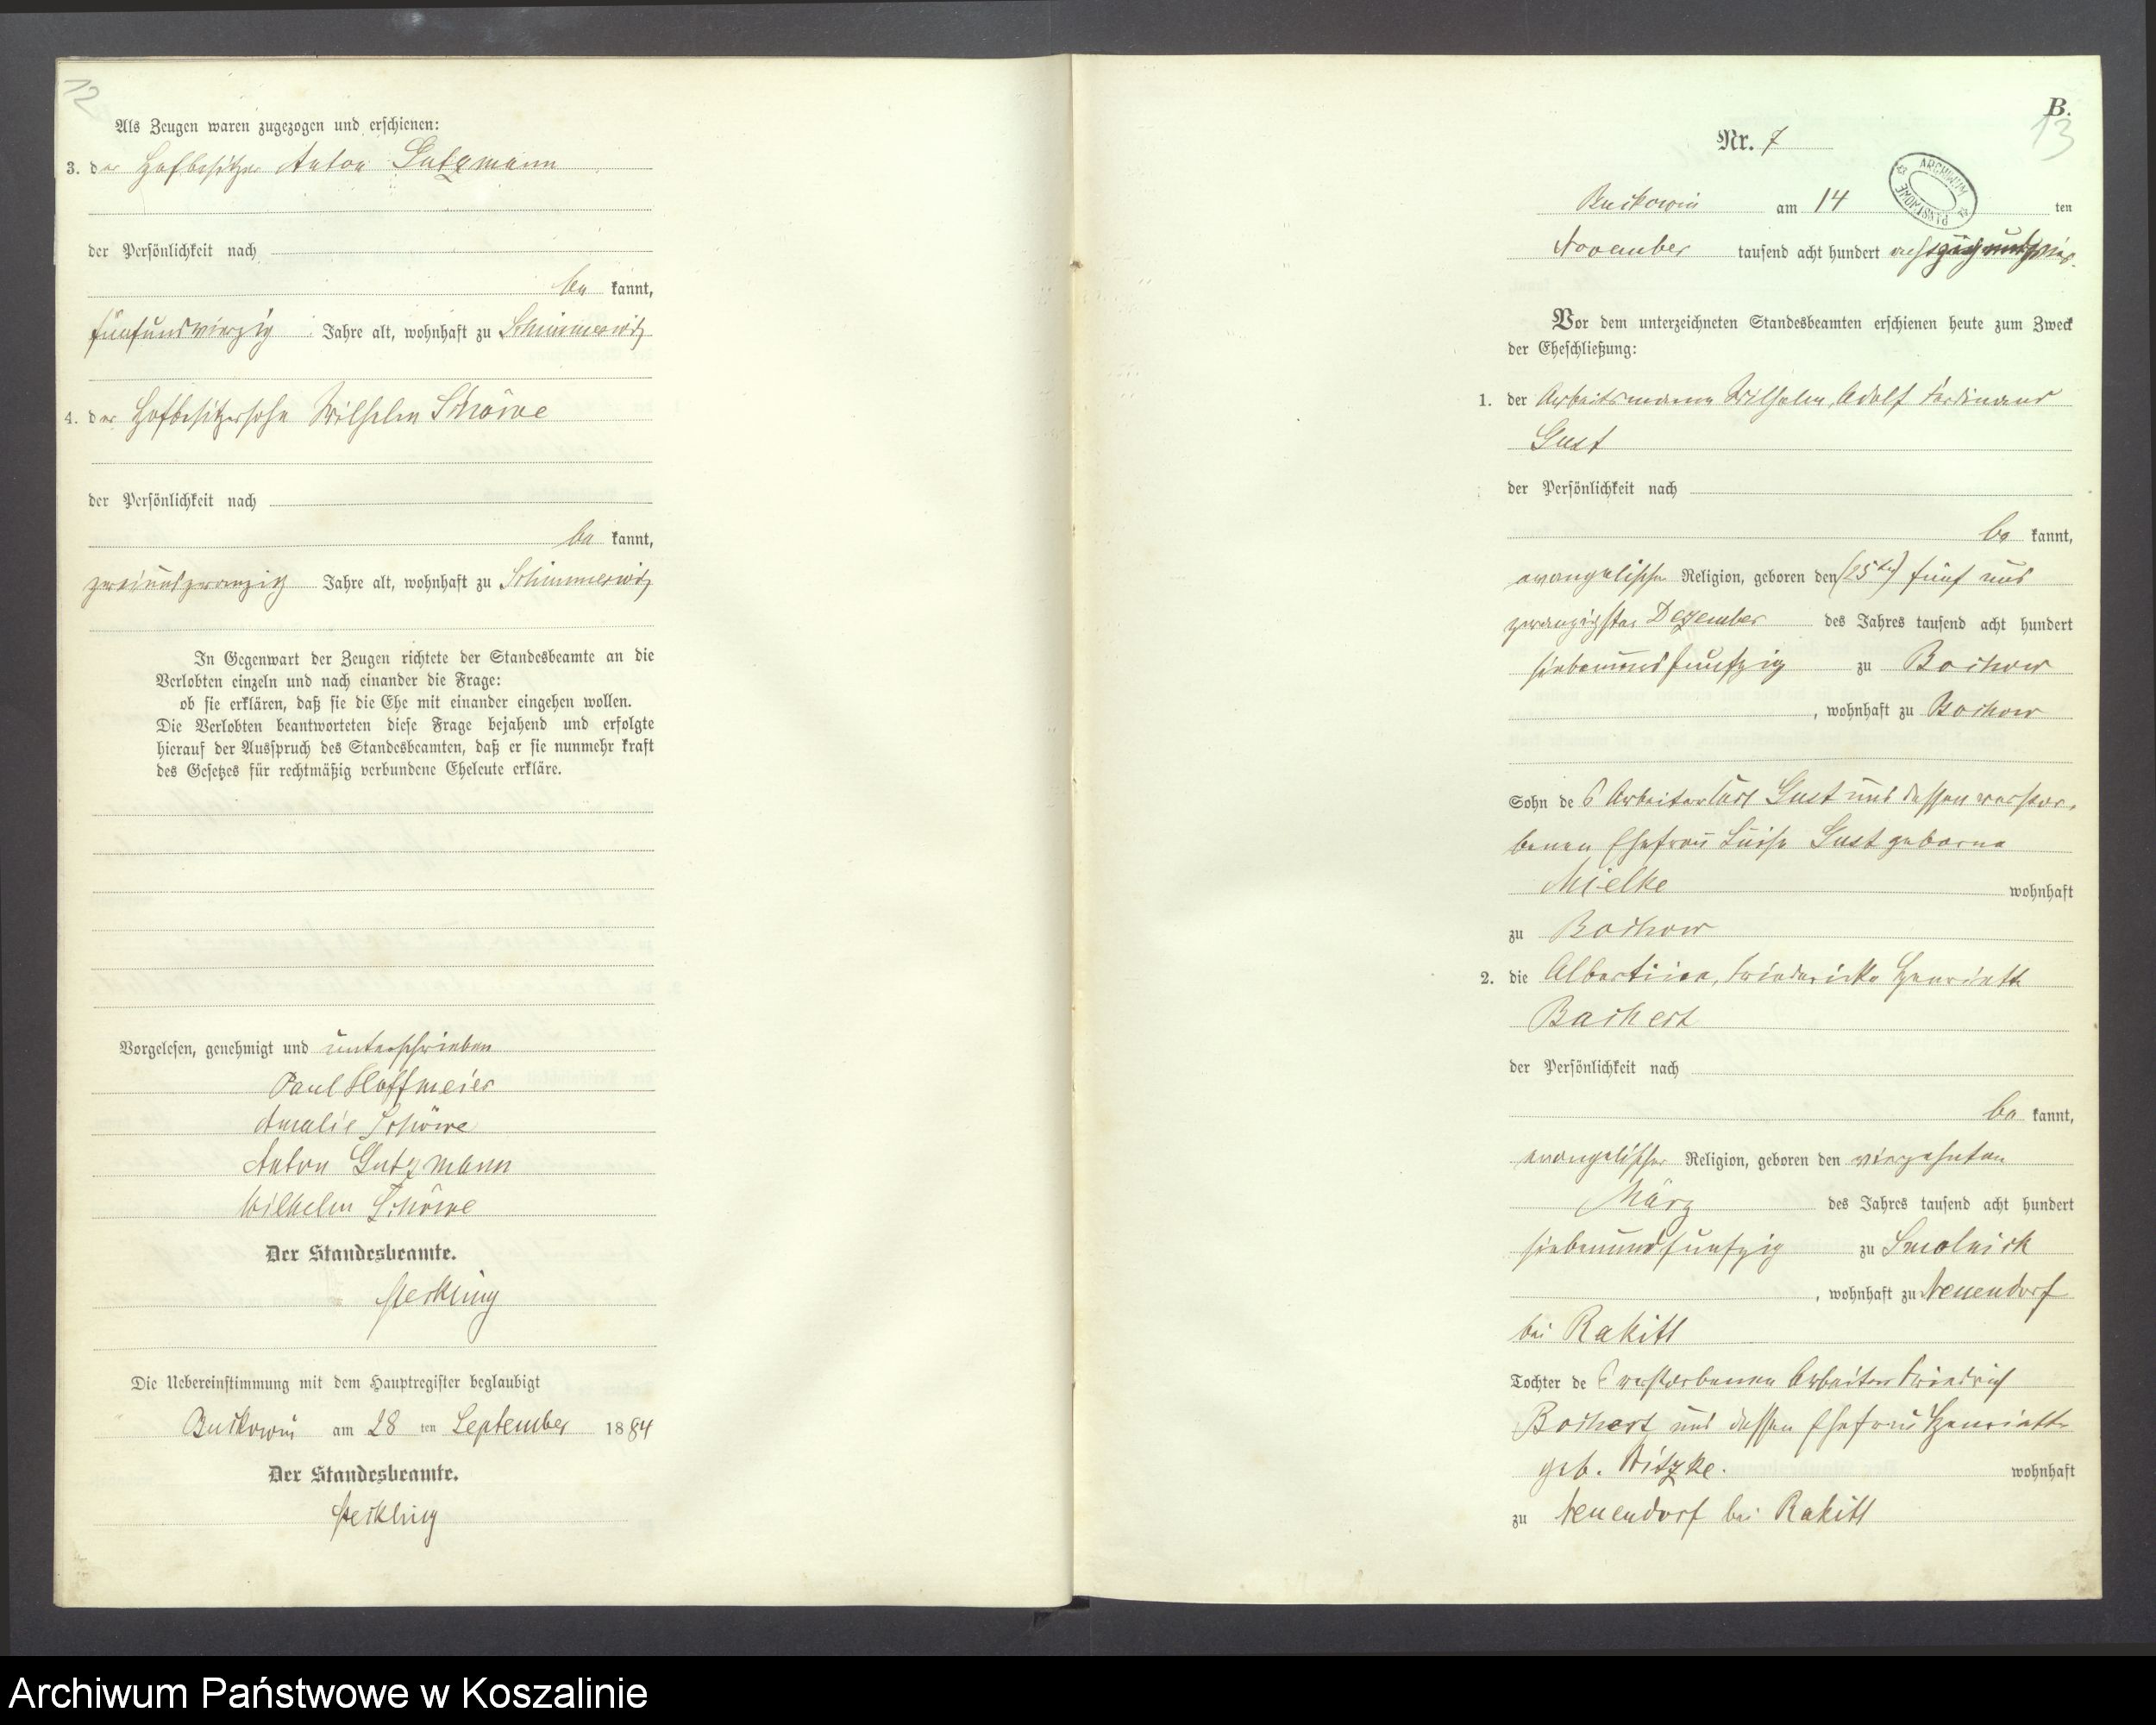 12
Als Zeugen waren zugezogen und erschienen:
3. der Hofbesitzer Anton Gutzmann
der Persönlichkeit nach
be kannt,
fünfundvierzig Jahre alt, wohnhaft zu Schimmerwitz
4. der Hofbesitzersohn Wilhelm Schöwe
der Persönlichkeit nach
be kannt,
zweiundzwanzig Jahre alt, wohnhaft zu Schimmerwitz
In Gegenwart der Zeugen richtete der Standesbeamte an die
Verlobten einzeln und nach einander die Frage:
ob sie erklären, daß sie die Ehe mit einander eingehen wollen.
Die Verlobten beantworteten diese Frage bejahend und erfolgte
hierauf der Ausspruch des Standesbeamten, daß er sie nunmehr kraft
des Gesetzes für rechtmäßig verbundene Eheleute erkläre.
Vorgelesen, genehmigt und unterschrieben
Paul Hoffmeier
Amalie Schöwe
Anton Gutzmann
Wilhelm Schöwe
Der Standesbeamte.
Die Uebereinstimmung mit dem Hauptregister beglaubigt
Buckowin am 28 ten September 1884
Der Standesbeamte.
B.
13
Nr. 7
ARCHIWUM PAŃSTWOWE
Buckowin am 14 ten
November tausend acht hundert achtzig und vier.
Vor dem unterzeichneten Standesbeamten erschienen heute zum Zweck
der Eheschließung:
1. der Arbeitsmann Wilhelm, Adolf Ferdinand
Gust
der Persönlichkeit nach
be kannt,
evangelischer Religion, geboren den (25ten) fünf und
zwanzigsten Dezember des Jahres tausend acht hundert
siebenundfunfzig zu Bochow
, wohnhaft zu Bochow
Sohn des Arbeiter Carl Gust und dessen verstor-
benen Ehefrau Luise Gust geborne
Mielke wohnhaft
zu Bochow
2. die Albertine, Friedericke Henriette
Bochert
der Persönlichkeit nach
be kannt,
evangelischer Religion, geboren den vierzehnten
März des Jahres tausend acht hundert
siebenundfunfzig zu Smolnick
, wohnhaft zu Neuendorf
bei Rakitt
Tochter des verstorbenen Arbeiters Friedrich
Bochert und dessen Ehefrau Henriette
geb. Nitzke. wohnhaft
zu Neuendorf bei Rakitt
Archiwum Państwowe w Koszalinie